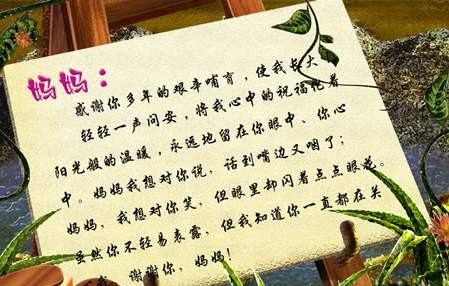 妈妈：
感谢你多年的艰辛哺育，使我长大
轻轻一声问安，将我心中的祝福托着
阳光般的温暖，永远地留在你眼中、你心
中。妈妈我想对你说，话到嘴边又咽了；
妈妈，我想对你笑，但眼里却闪着点点眼花。
虽然你不轻易表露，但我知道你一直都在关
谢谢你，妈妈！